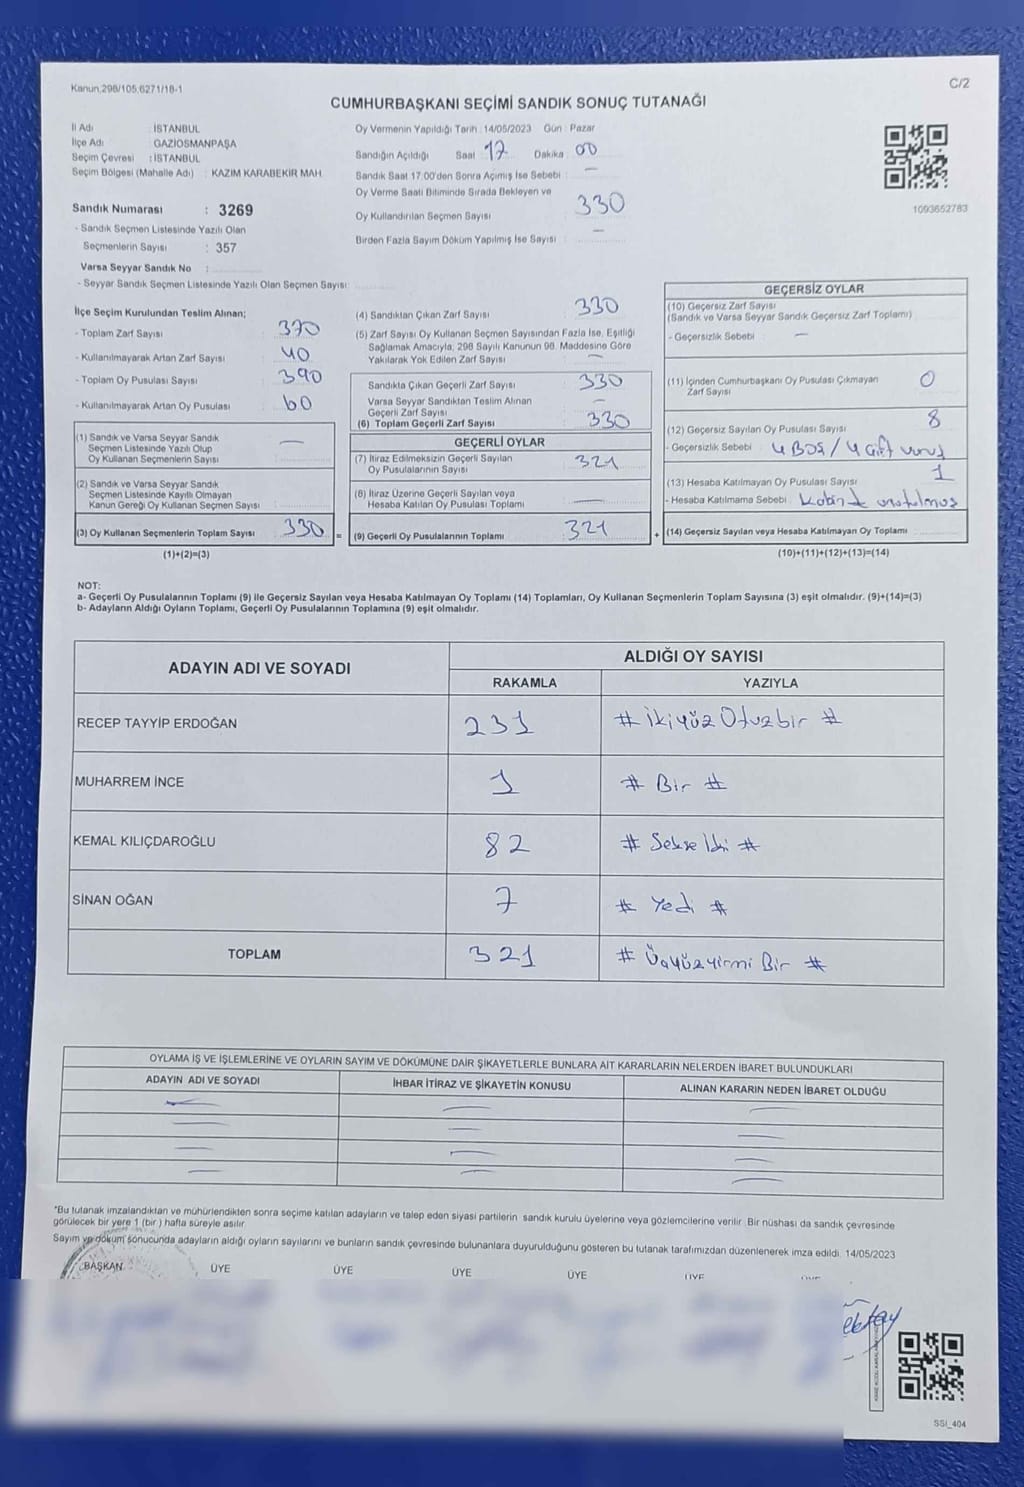 Kanun;298/105;6271/18-1
C/2
CUMHURBAŞKANI SEÇİMİ SANDIK SONUÇ TUTANAĞI
İl Adı : İSTANBUL
İlçe Adı : GAZİOSMANPAŞA
Seçim Çevresi : İSTANBUL
Seçim Bölgesi (Mahalle Adı) : KAZIM KARABEKİR MAH.
Sandık Numarası : 3269
- Sandık Seçmen Listesinde Yazılı Olan
Seçmenlerin Sayısı : 357
Varsa Seyyar Sandık No :
- Seyyar Sandık Seçmen Listesinde Yazılı Olan Seçmen Sayısı:
Oy Vermenin Yapıldığı Tarih : 14/05/2023 Gün : Pazar
Sandığın Açıldığı Saat 17 Dakika 00
Sandık Saat 17:00'den Sonra Açımış İse Sebebi : —
Oy Verme Saati Bitiminde Sırada Bekleyen ve
Oy Kullandırılan Seçmen Sayısı : 330
Birden Fazla Sayım Döküm Yapılmış İse Sayısı : —
1093652783
İlçe Seçim Kurulundan Teslim Alınan;
- Toplam Zarf Sayısı : 370
- Kullanılmayarak Artan Zarf Sayısı : 40
- Toplam Oy Pusulası Sayısı : 390
- Kullanılmayarak Artan Oy Pusulası : 60
(1) Sandık ve Varsa Seyyar Sandık
Seçmen Listesinde Yazılı Olup
Oy Kullanan Seçmenlerin Sayısı : —
(2) Sandık ve Varsa Seyyar Sandık
Seçmen Listesinde Kayıtlı Olmayan
Kanun Gereği Oy Kullanan Seçmen Sayısı :
(3) Oy Kullanan Seçmenlerin Toplam Sayısı 330 =
(1)+(2)=(3)
(4) Sandıktan Çıkan Zarf Sayısı : 330
(5) Zarf Sayısı Oy Kullanan Seçmen Sayısından Fazla İse, Eşitliği
Sağlamak Amacıyla, 298 Sayılı Kanunun 98. Maddesine Göre
Yakılarak Yok Edilen Zarf Sayısı : —
Sandıkta Çıkan Geçerli Zarf Sayısı : 330
Varsa Seyyar Sandıktan Teslim Alınan
Geçerli Zarf Sayısı : —
(6) Toplam Geçerli Zarf Sayısı : 330
GEÇERLİ OYLAR
(7) İtiraz Edilmeksizin Geçerli Sayılan
Oy Pusulalarının Sayısı : 321
(8) İtiraz Üzerine Geçerli Sayılan veya
Hesaba Katılan Oy Pusulası Toplamı : —
(9) Geçerli Oy Pusulalarının Toplamı : 321 +
GEÇERSİZ OYLAR
(10) Geçersiz Zarf Sayısı
(Sandık ve Varsa Seyyar Sandık Geçersiz Zarf Toplamı) :
- Geçersizlik Sebebi : —
(11) İçinden Cumhurbaşkanı Oy Pusulası Çıkmayan
Zarf Sayısı : 0
(12) Geçersiz Sayılan Oy Pusulası Sayısı : 8
- Geçersizlik Sebebi : 4 BOŞ / 4 Çift vuruş
(13) Hesaba Katılmayan Oy Pusulası Sayısı : 1
- Hesaba Katılmama Sebebi : Kabinde unutulmuş
(14) Geçersiz Sayılan veya Hesaba Katılmayan Oy Toplamı :
(10)+(11)+(12)+(13)=(14)
NOT:
a- Geçerli Oy Pusulalarının Toplamı (9) ile Geçersiz Sayılan veya Hesaba Katılmayan Oy Toplamı (14) Toplamları, Oy Kullanan Seçmenlerin Toplam Sayısına (3) eşit olmalıdır. (9)+(14)=(3)
b- Adayların Aldığı Oyların Toplamı, Geçerli Oy Pusulalarının Toplamına (9) eşit olmalıdır.
ADAYIN ADI VE SOYADI
ALDIĞI OY SAYISI
RAKAMLA YAZIYLA
RECEP TAYYİP ERDOĞAN 231 # İkiyüz Otuzbir #
MUHARREM İNCE 1 # Bir #
KEMAL KILIÇDAROĞLU 82 # Seksen İki #
SİNAN OĞAN 7 # Yedi #
TOPLAM 321 # Üçyüzyirmi Bir #
OYLAMA İŞ VE İŞLEMLERİNE VE OYLARIN SAYIM VE DÖKÜMÜNE DAİR ŞİKAYETLERLE BUNLARA AİT KARARLARIN NELERDEN İBARET BULUNDUKLARI
ADAYIN ADI VE SOYADI İHBAR İTİRAZ VE ŞİKAYETİN KONUSU ALINAN KARARIN NEDEN İBARET OLDUĞU
*Bu tutanak imzalandıktan ve mühürlendikten sonra seçime katılan adayların ve talep eden siyasi partilerin sandık kurulu üyelerine veya gözlemcilerine verilir. Bir nüshası da sandık çevresinde
görülecek bir yere 1 (bir) hafta süreyle asılır.
Sayım ve döküm sonucunda adayların aldığı oyların sayılarını ve bunların sandık çevresinde bulunanlara duyurulduğunu gösteren bu tutanak tarafımızdan düzenlenerek imza edildi. 14/05/2023
BAŞKAN ÜYE ÜYE ÜYE ÜYE ÜYE
SSI_404